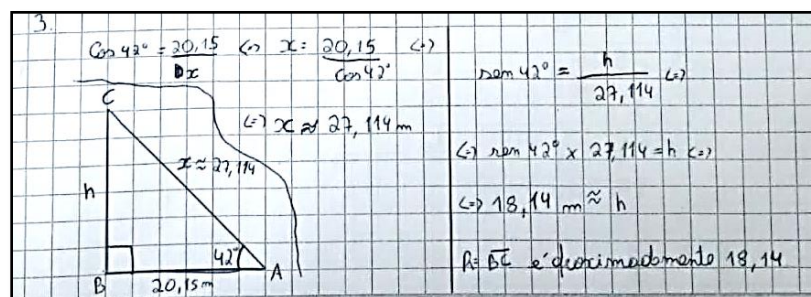 3.
Cos 42° = 20,15 / x <=> x = 20,15 / Cos 42° <=>
<=> x ≈ 27,114 m
C
x ≈ 27,114
h
42°
B
A
20,15 m
sen 42° = h / 27,114 <=>
<=> sen 42° x 27,114 = h <=>
<=> 18,14 m ≈ h
R: BC é aproximadamente 18,14